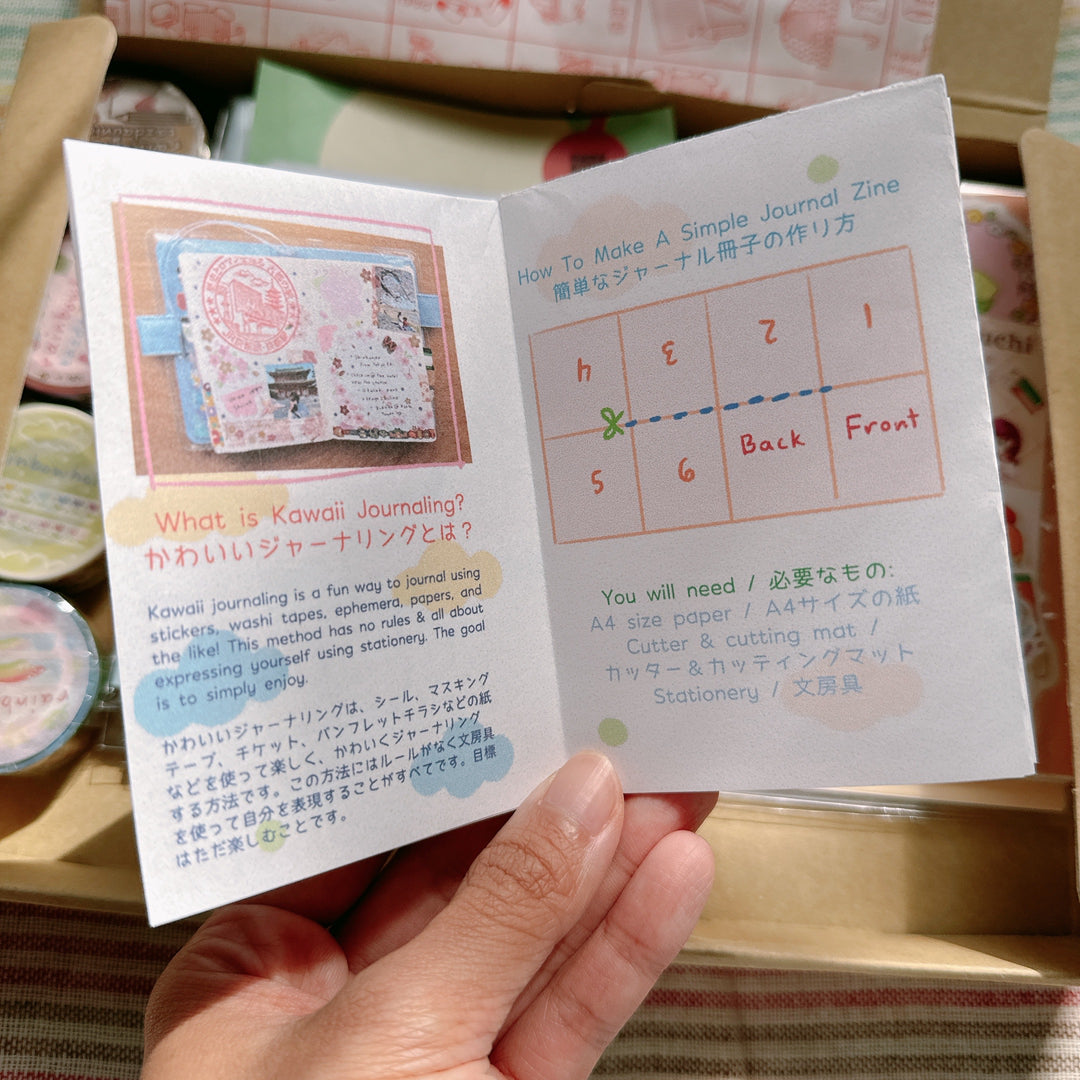 What is Kawaii Journaling?
かわいいジャーナリングとは？
Kawaii journaling is a fun way to journal using
stickers, washi tapes, ephemera, papers, and
the like! This method has no rules & all about
expressing yourself using stationery. The goal
is to simply enjoy.
かわいいジャーナリングは、シール、マスキング
テープ、チケット、パンフレットチラシなどの紙
などを使って楽しく、かわいくジャーナリング
する方法です。この方法にはルールがなく文房具
を使って自分を表現することがすべてです。目標
はただ楽しむことです。
How To Make A Simple Journal Zine
簡単なジャーナル冊子の作り方
4 3 2 1
5 6 Back Front
You will need / 必要なもの:
A4 size paper / A4サイズの紙
Cutter & cutting mat /
カッター＆カッティングマット
Stationery / 文房具